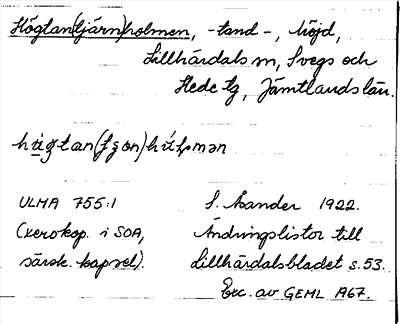 Högtan(tjärn)holmen, -tand-, höjd,
Lillhärdals sn, Svegs och
Hede tg, Jämtlands län.
hügtan( )
ULMA 755:1 S. Lander 1922.
(xerokop. i SOA, Ändringslistor till
särsk. kapsel). Lillhärdalsbladet s. 53.
Exc. av GEML 1967.